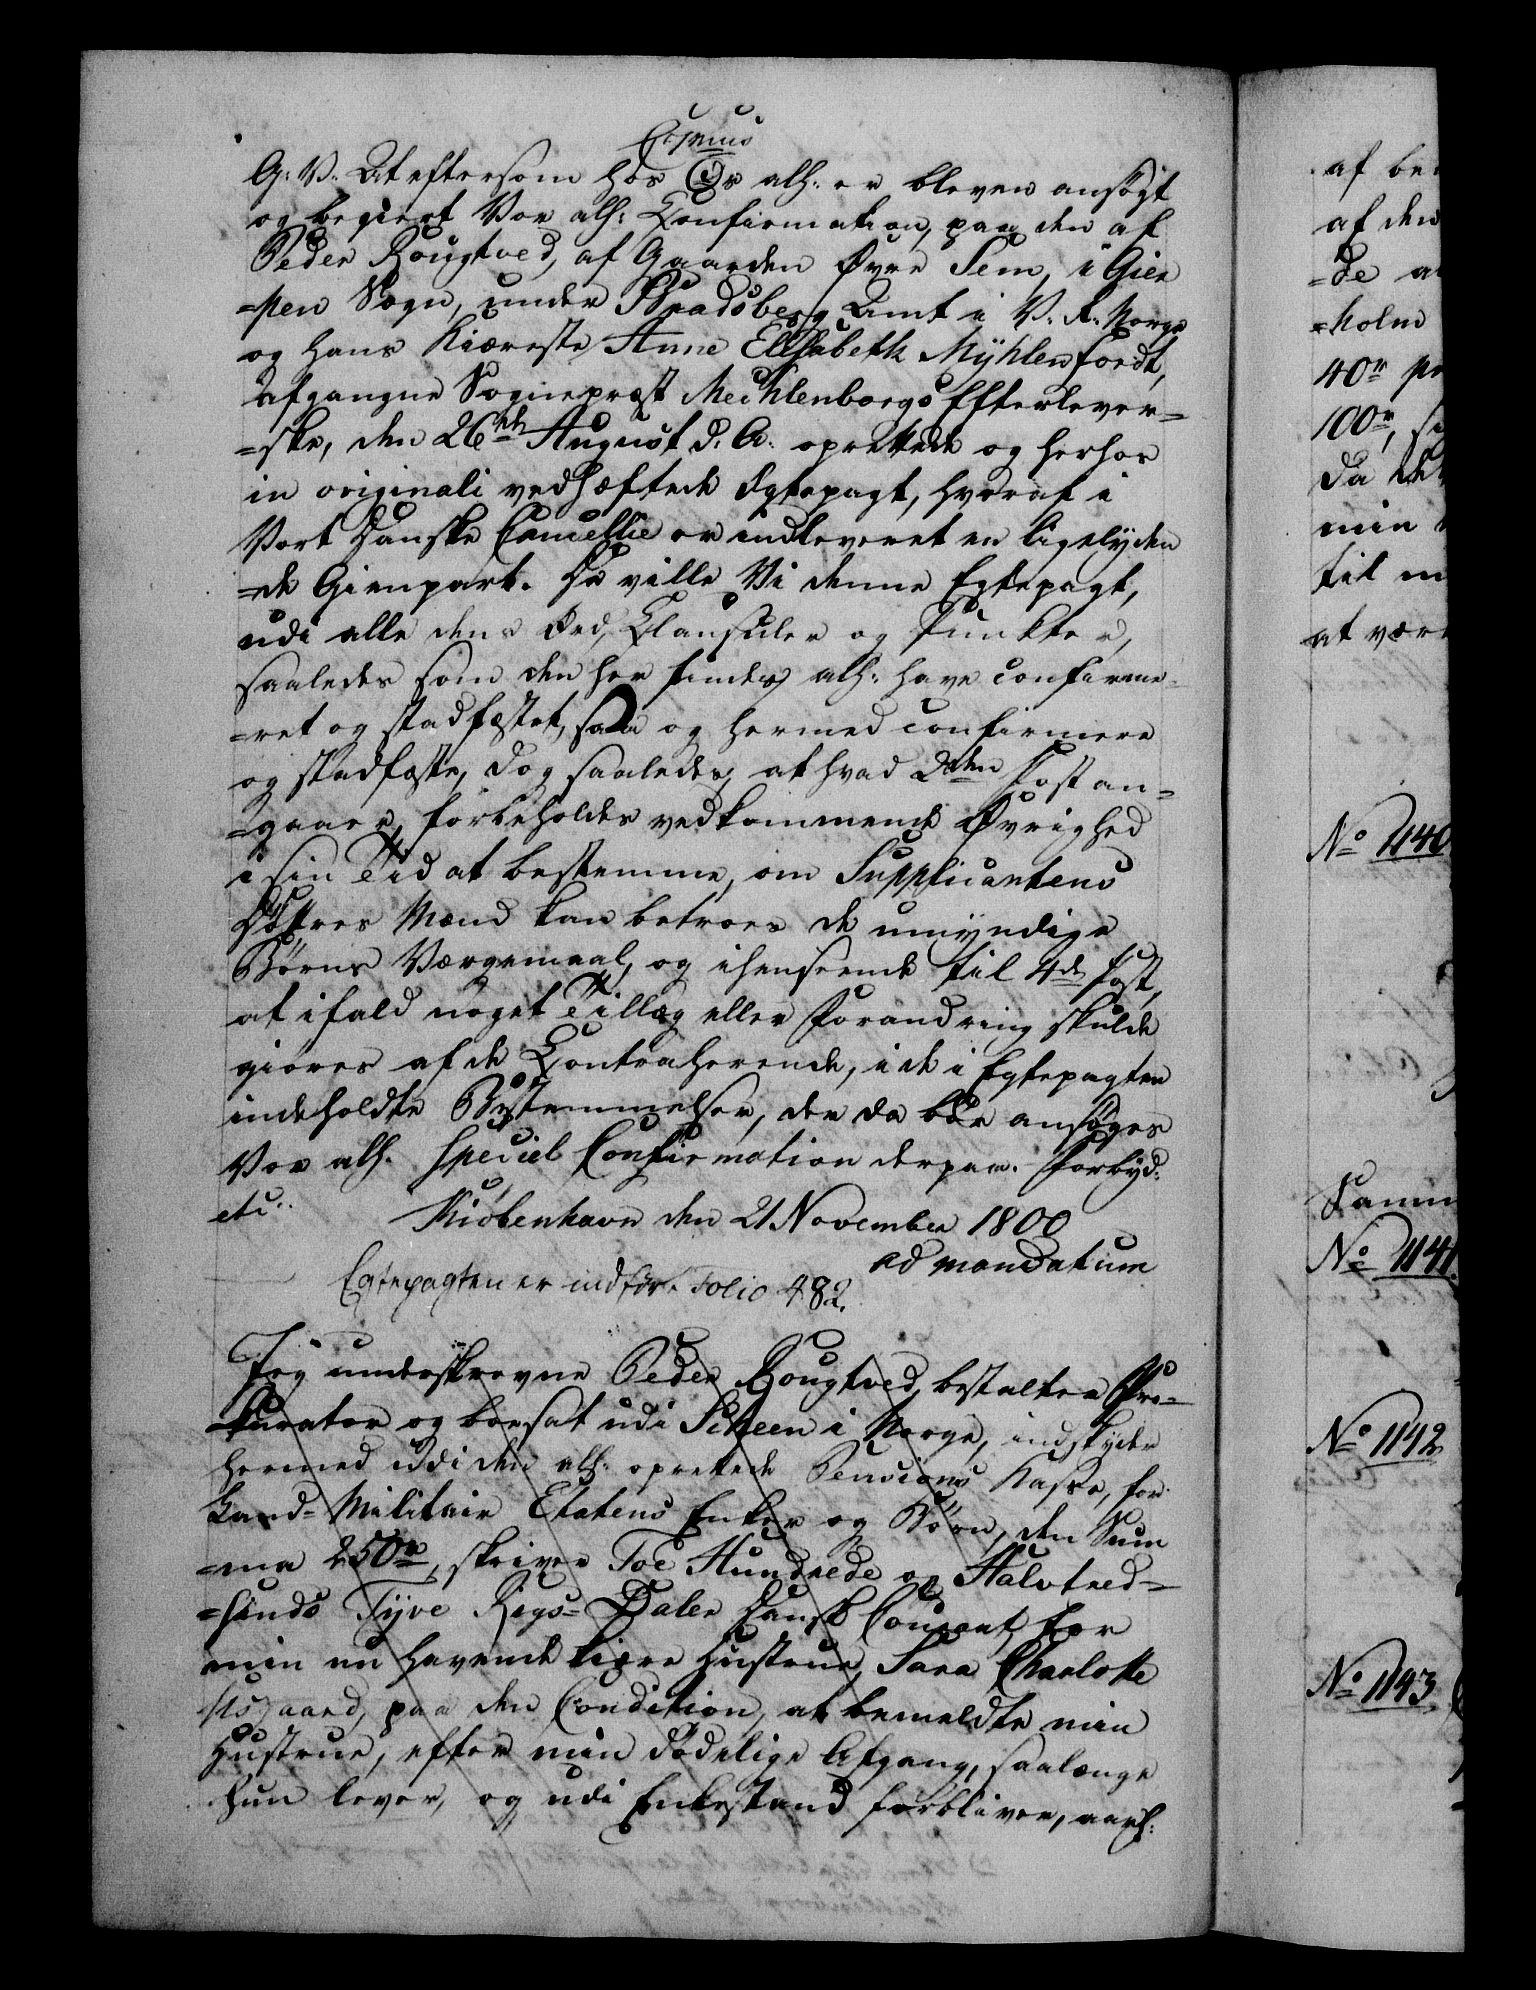 G: V: At eftersom hos Os allh: er bleven ansøgt
og begiert Vor allh: Confirmation, paa den af
Peder Rougtved, af Gaarden Øvre Sem, i Gier
=pen Sogn, under Bradsberg Amt i V. R. Norge
og hans Kiæreste Anne Elisabeth Mÿhlenfordt,
afgangne Sognepræst Mechlenborgs Efterlever=
=ske, den 26de August d: A: oprettede og herhos
in originali vedhæftede Egtepagt, hvoraf i
Vort Danske Cancellie er indleveret en ligelyden
=de Gienpart. Da ville Vi denne Egtepagt,
udi alle dens Ord, Clausuler og Punkter,
saaledes som den her findes, allh: have confirme=
=ret og stadfæstet, saa og hermed confirmere
og stadfæste, dog saaledes, at hvad 2den Post an=
=gaaer, forbeholdes vedkommende Øvrighed
i sin Tid at bestemme, om Supplicantens
Døttres Mænd kan betroes de umyndige
Børns Værgemaal, og ihenseende til 4de Post,
at ifald noget Tillæg eller Forandring skulde
giøres af de Contraherende, i de i Egtepagten
indeholdte Bestemmelser, der da bør ansøges
Vor allh: speciel Confirmation derpaa. Forbyd:
etc:
Kiøbenhavn den 21 November 1800
ad mandatum
Egtepagten er indført Folio 482.
Jeg underskrevne Peder Rougtved, bestalter Pro=
=kurator og boesat udi Scheen i Norge, indskyder
hermed udi den allh: oprettede Pensions Kasse, for
Land=Militair Etatens Enker og Børn, den Sum
=ma 250rd, skriver Toe Hundrede og Halvtred=
=sinds Tyve Rigs=Daler Dansk Courant for
min nu havende kiære Hustrue, Sara Charlotte
paa den Condition, at bemeldte min
Hustrue, efter min dødelige Afgang, saalænge
hun lever, og udi Enkestand forbliver, aarl:
af den
=de
=holm
40rd
100rd,
da
min
til
at være
No 1140
No 1141.
No 1142
No 1143